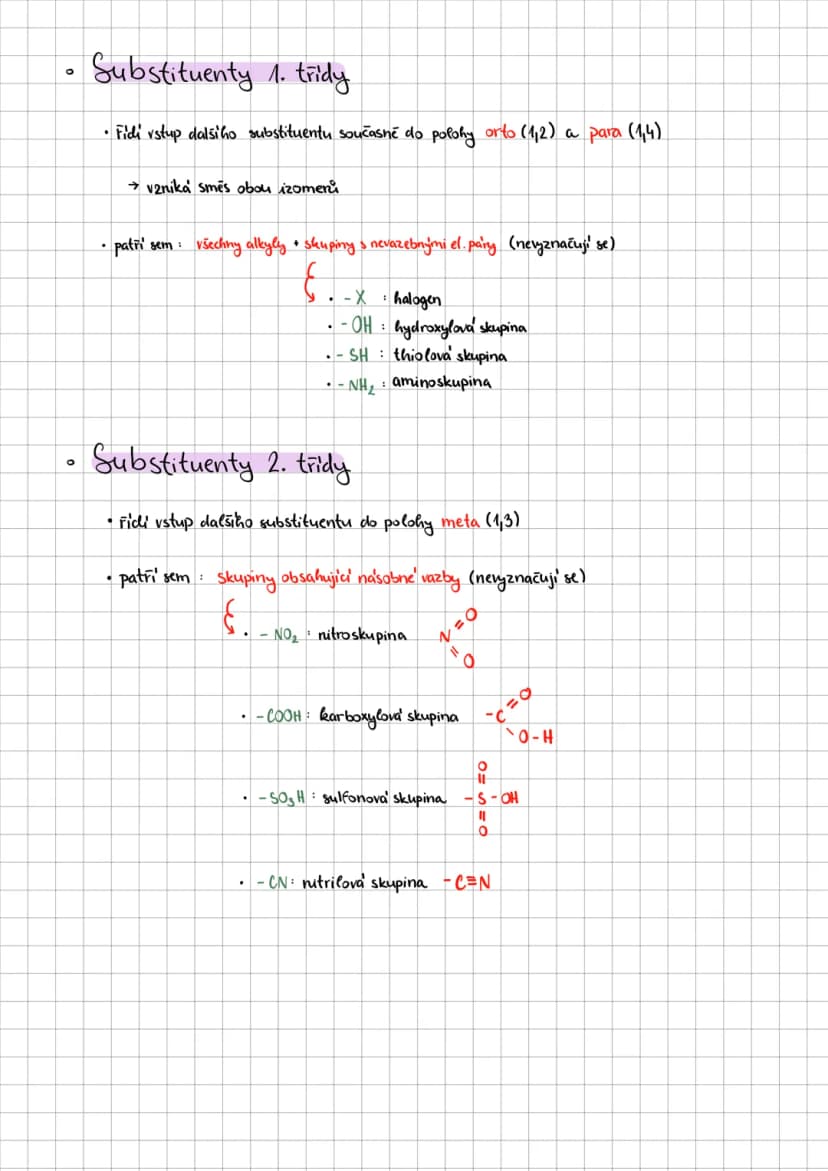 Substituenty 1. třídy
• řídí vstup dalšího substituentu současně do polohy orto (1,2) a para (1,4)
→ vzniká směs obou izomerů
• patří sem : všechny alkyly + skupiny s nevazebnými el. páry (nevyznačují se)
• - X : halogen
• - OH : hydroxylová skupina
• - SH : thiolová skupina
• - NH₂ : aminoskupina
Substituenty 2. třídy
• řídí vstup dalšího substituentu do polohy meta (1,3)
• patří sem : skupiny obsahující násobné vazby (nevyznačují se)
• - NO₂ : nitroskupina N=O =O
• - COOH : karboxylová skupina -C=O O-H
• - SO₃H : sulfonová skupina O = -S-OH = O
• - CN : nitrilová skupina -C≡N